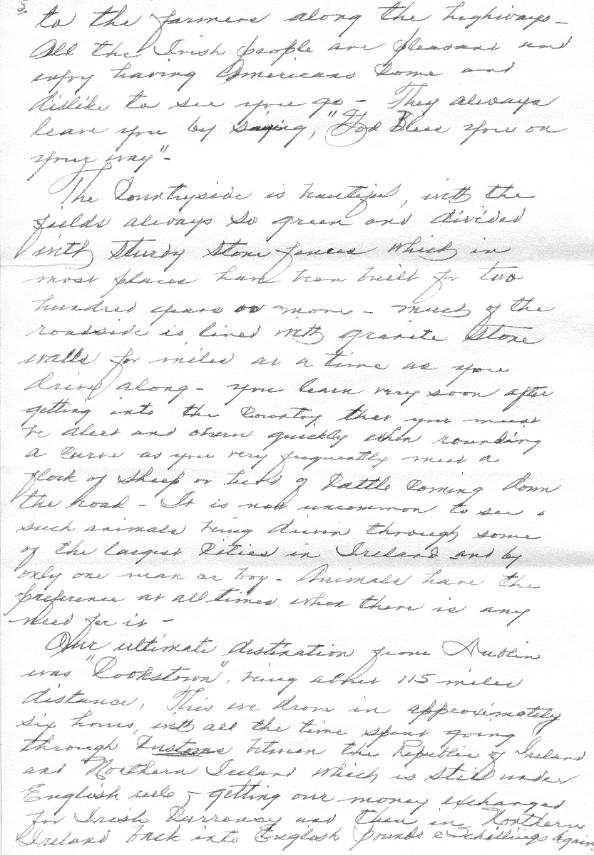 5
to the farmers along the highways -
All the Irish people are pleasant and
enjoy having Americans come and
dislike to see you go - They always
leave you by saying, "God Bless you on
your way" -
The Countryside is beautiful, with the
fields always so green and divided
with sturdy stone fences which in
most places have been built for two
hundred years or more - much of the
roadside is lined with granite stone
walls for miles at a time as you
drive along - you learn very soon after
getting into the Country that you must
be alert and observe quickly when rounding
a curve as you very frequently meet a
flock of sheep or herd of Cattle Coming down
the road - It is not uncommon to see
such animals being driven through some
of the largest Cities in Ireland and by
only one man or boy - Animals have the
preference at all times when there is any
need for it -
Our ultimate destination from Dublin
was "Cookstown", being about 115 miles
distance, This we drove in approximately
six hours, with all the time spent going
through Customs between the Republic of Ireland
and Northern Ireland which is still under
English rule - getting our money exchanged
for Irish Currency and then in Northern
Ireland back into English pounds & schillings again.